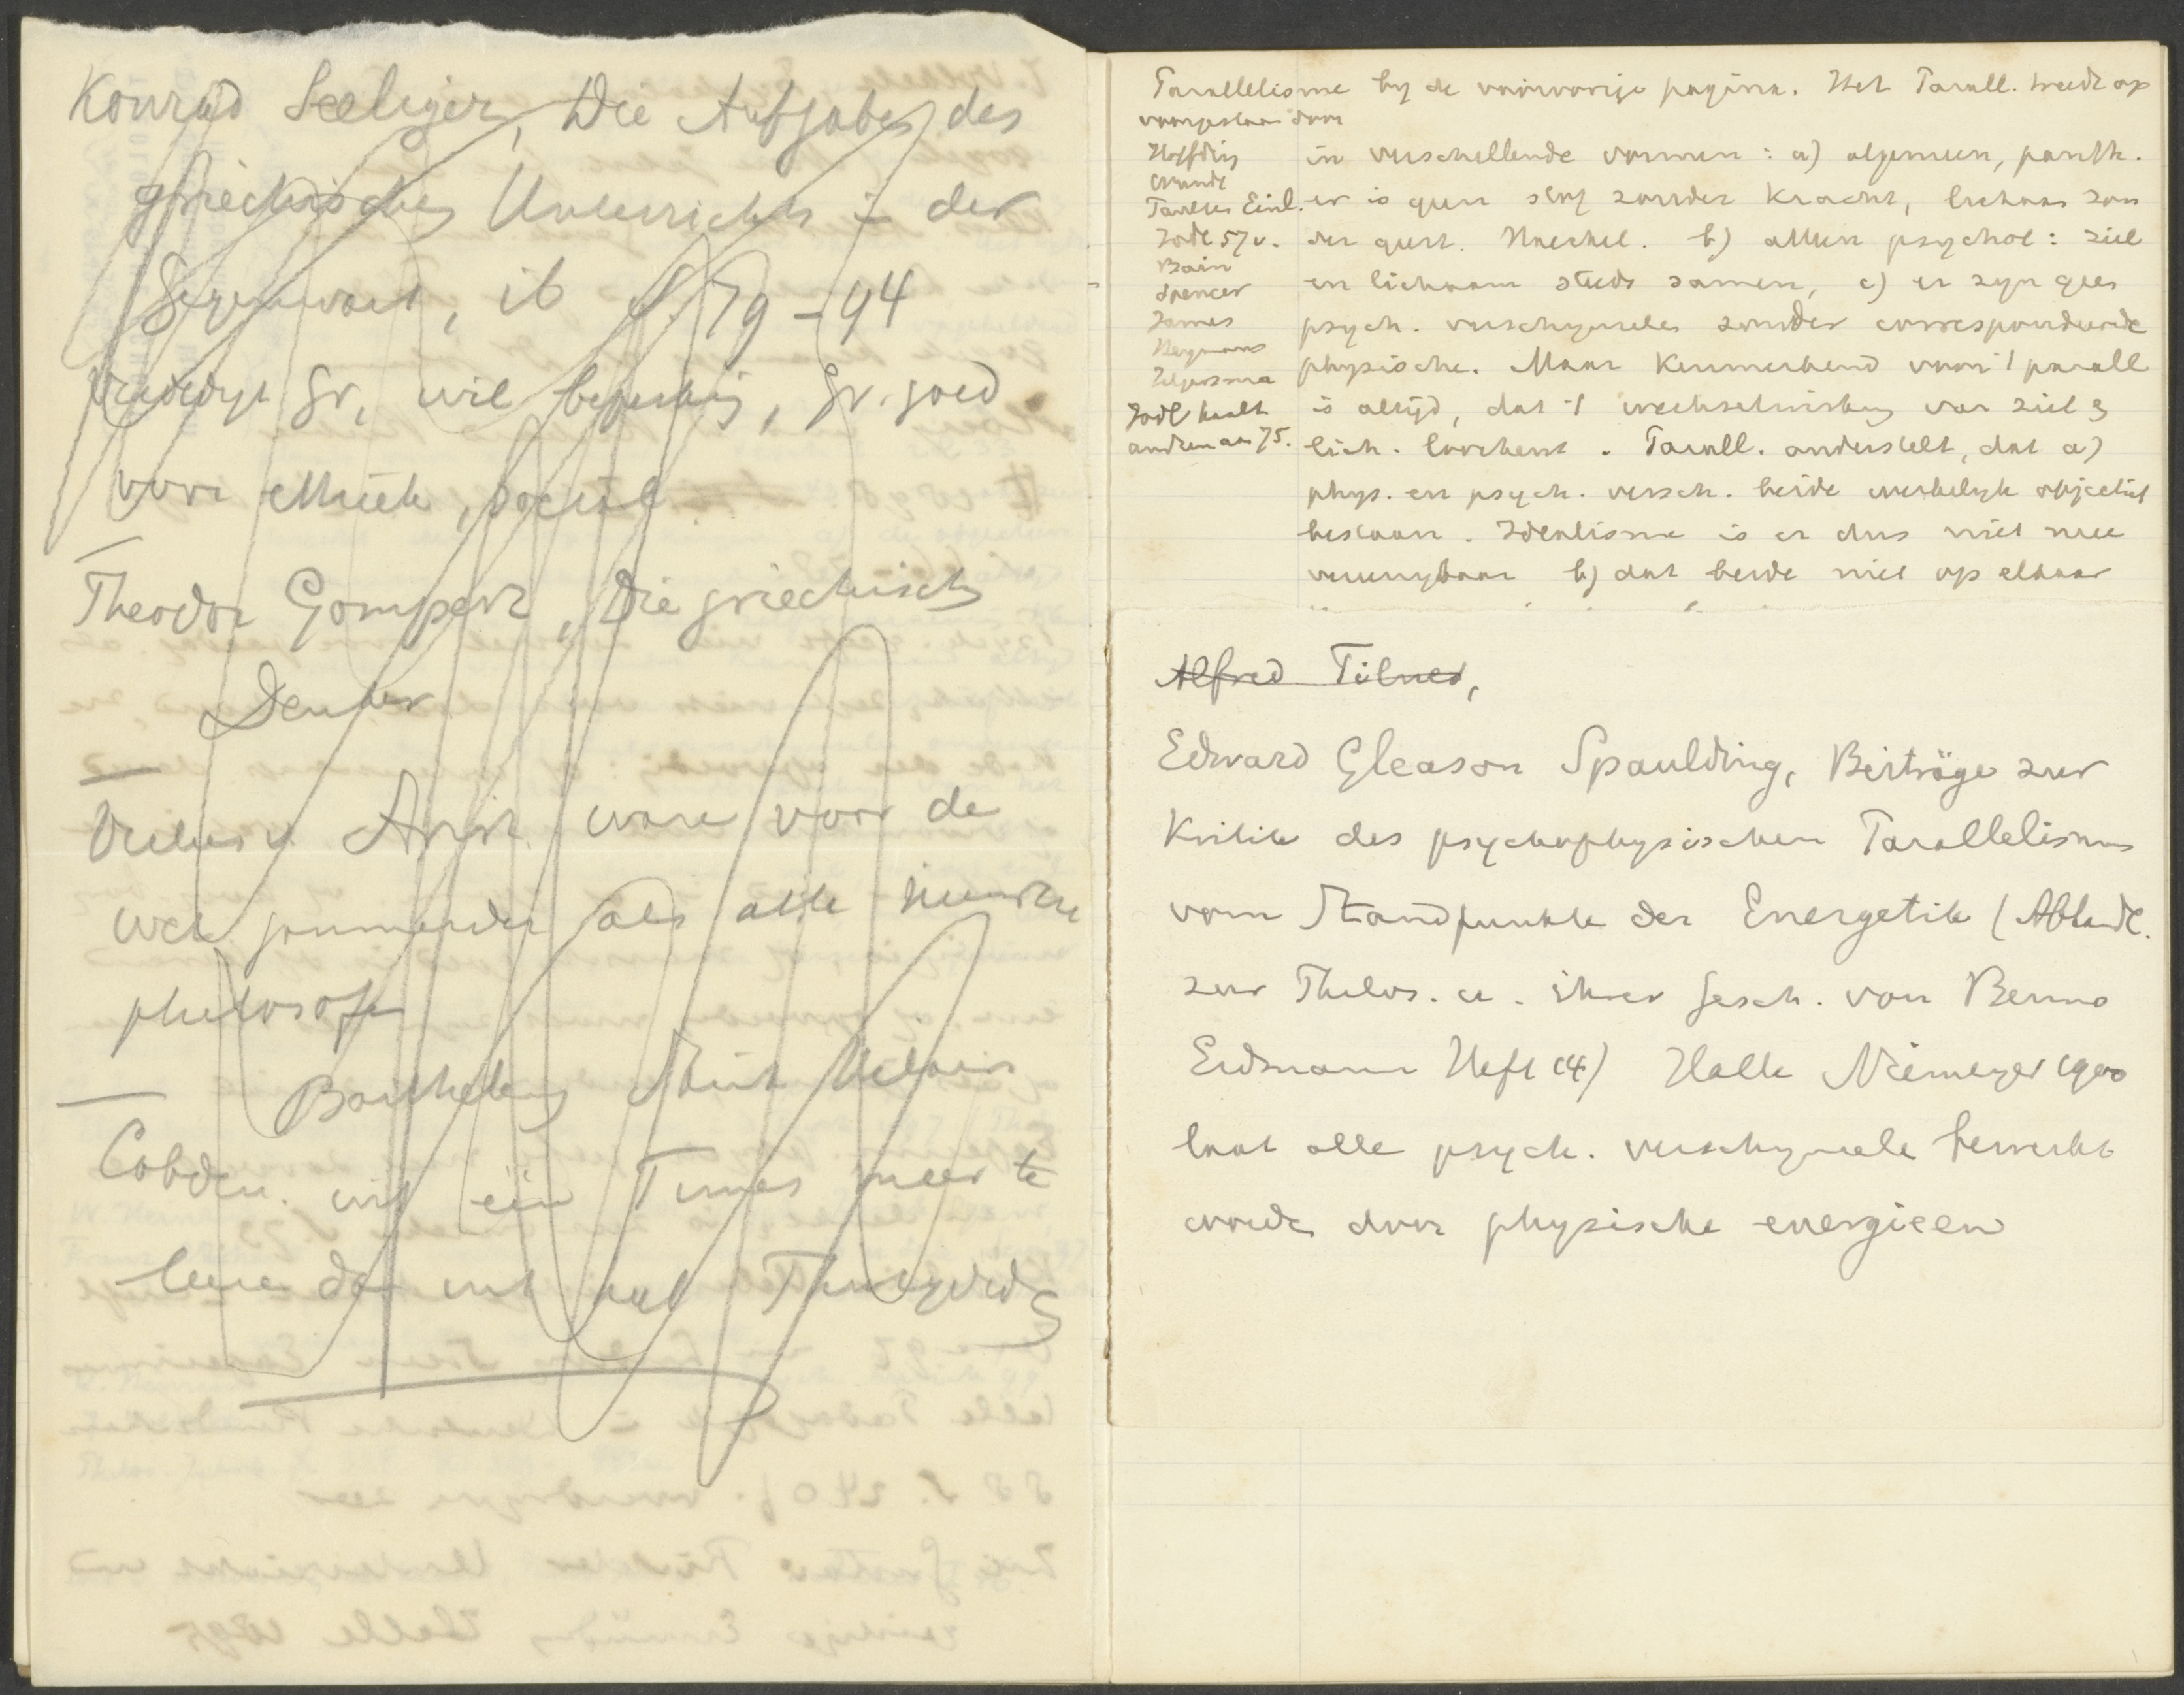 Konrad Seeliger, Die Aufgabe des
griechischen Unterrichts in der
Gegenwart, ib S. 79-94
verdedigt Gr. wil beperking, Gr. goed
voor ethiek, sociaal
Theodor Gomperz, Die griechische
Denker
Arist. ware voor de
als alle
philosofen
Barthélemy Saint Hilaire
Cobden. uit één Times meer te
leeren dan uit heel Thucydides
Parallelisme by de voorvorige pagina. Het Parall. treedt op
voorgestaan door
Höffding
Wundt
Paulsen Einl.
Jodl 57v.
Bain
Spencer
James
Heymans
Jelgersma
Jodl haalt
anderen aan 75.
in verschillende vormen: a) algemeen, panth.
er is geen stof zonder kracht, lichaam zon
der geest. Haeckel. b) alleen psychol: ziel
en lichaam steeds samen, c) er zyn geen
psych. verschynselen zonder correspondeerende
physische. Maar kenmerkend voor 't parall
is altijd, dat 't wechselwirkung van ziel en
lich. loochent. Parall. onderstelt, dat a)
phys. en psych. versch. beide werkelyk objectief
bestaan. Idealisme is er dus niet mee
vereenigbaar b) dat beide niet op elkaar
Alfred
Edward Gleason Spaulding, Beiträge zur
Kritik des psychophysischen Parallelismus
vom Standpunkte der Energetik (Abhandl.
zur Philos. u. ihrer Gesch. von Benno
Erdmann Heft 14) Halle Niemeyer 1900
laat alle psych. verschynselen bewerkt
worden door physische energieen